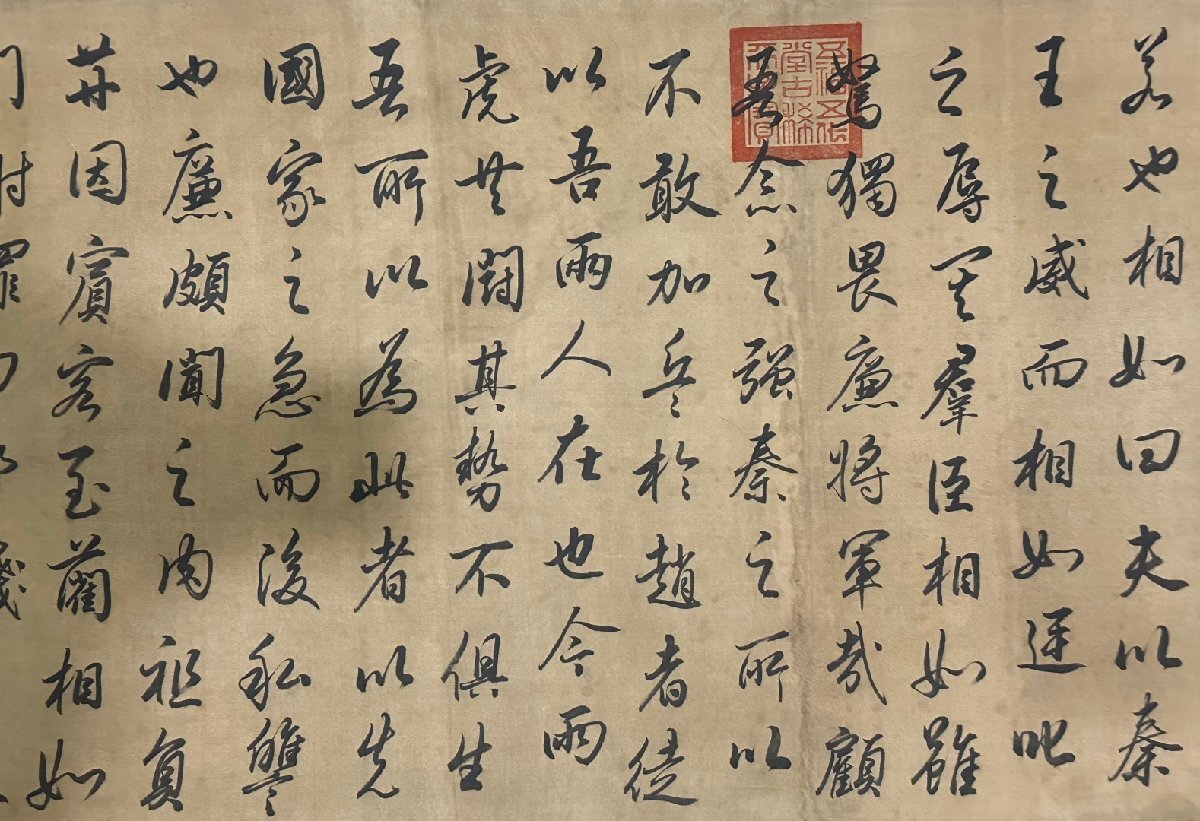 若也相如曰夫以秦
王之威而相如廷叱
之辱其羣臣相如雖
駑獨畏廉將軍哉顧
吾念之强秦之所以
不敢加兵於趙者徒
以吾兩人在也今兩
虎共鬬其勢不俱生
吾所以為此者以先
國家之急而後私讐
也廉頗聞之肉袒負
荊因賓客至藺相如
五福五代
堂古稀
天子寶